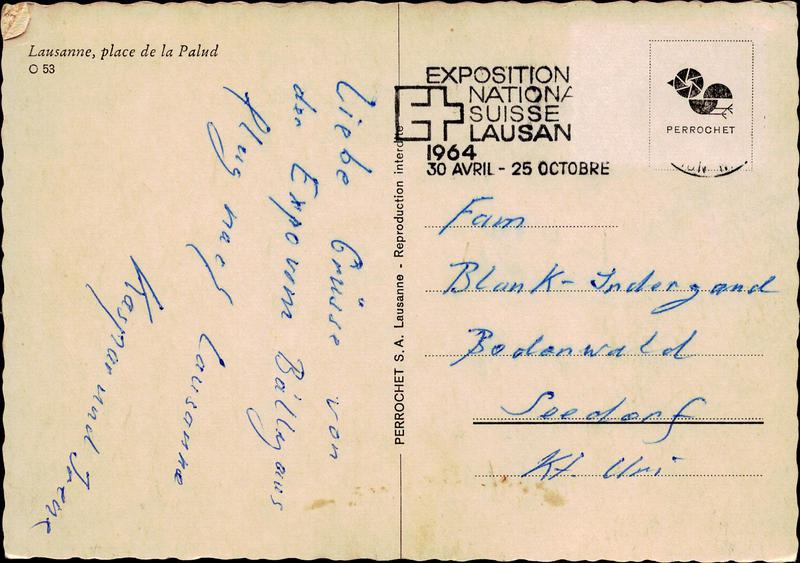 Lausanne, place de la Palud
O 53
Liebe Grüsse von
der Expo vom
Flug nach Lausanne
Kaspar und
PERROCHET S. A. Lausanne - Reproduction interdite
EXPOSITION
NATIONA
SUISSE
LAUSAN
1964
30 AVRIL - 25 OCTOBRE
PERROCHET
Fam
Blank-Indergand
Bodenwald
Seedorf
Kt. Uri